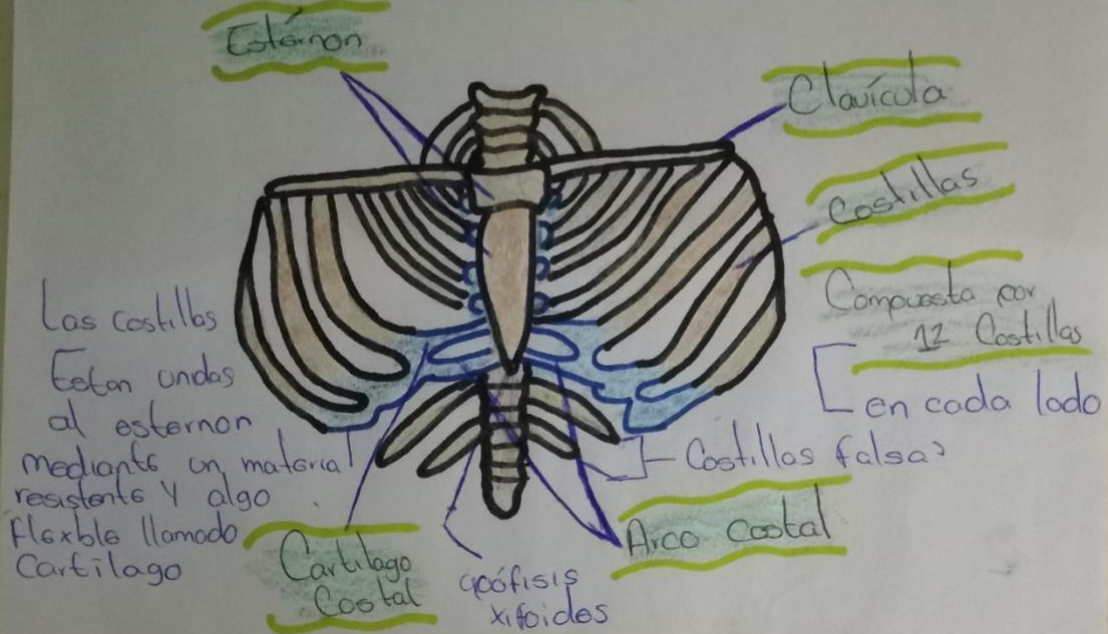 Estérnon
Clavícula
Costillas
Compuesta por
12 Costillas
en cada lado
Las costillas
Estan undas
al esternon
mediante un material
resistente y algo
flexble llamado
Cartilago
Costillas falsas
Arco Costal
Cartilago
Costal
apófisis
xifoides